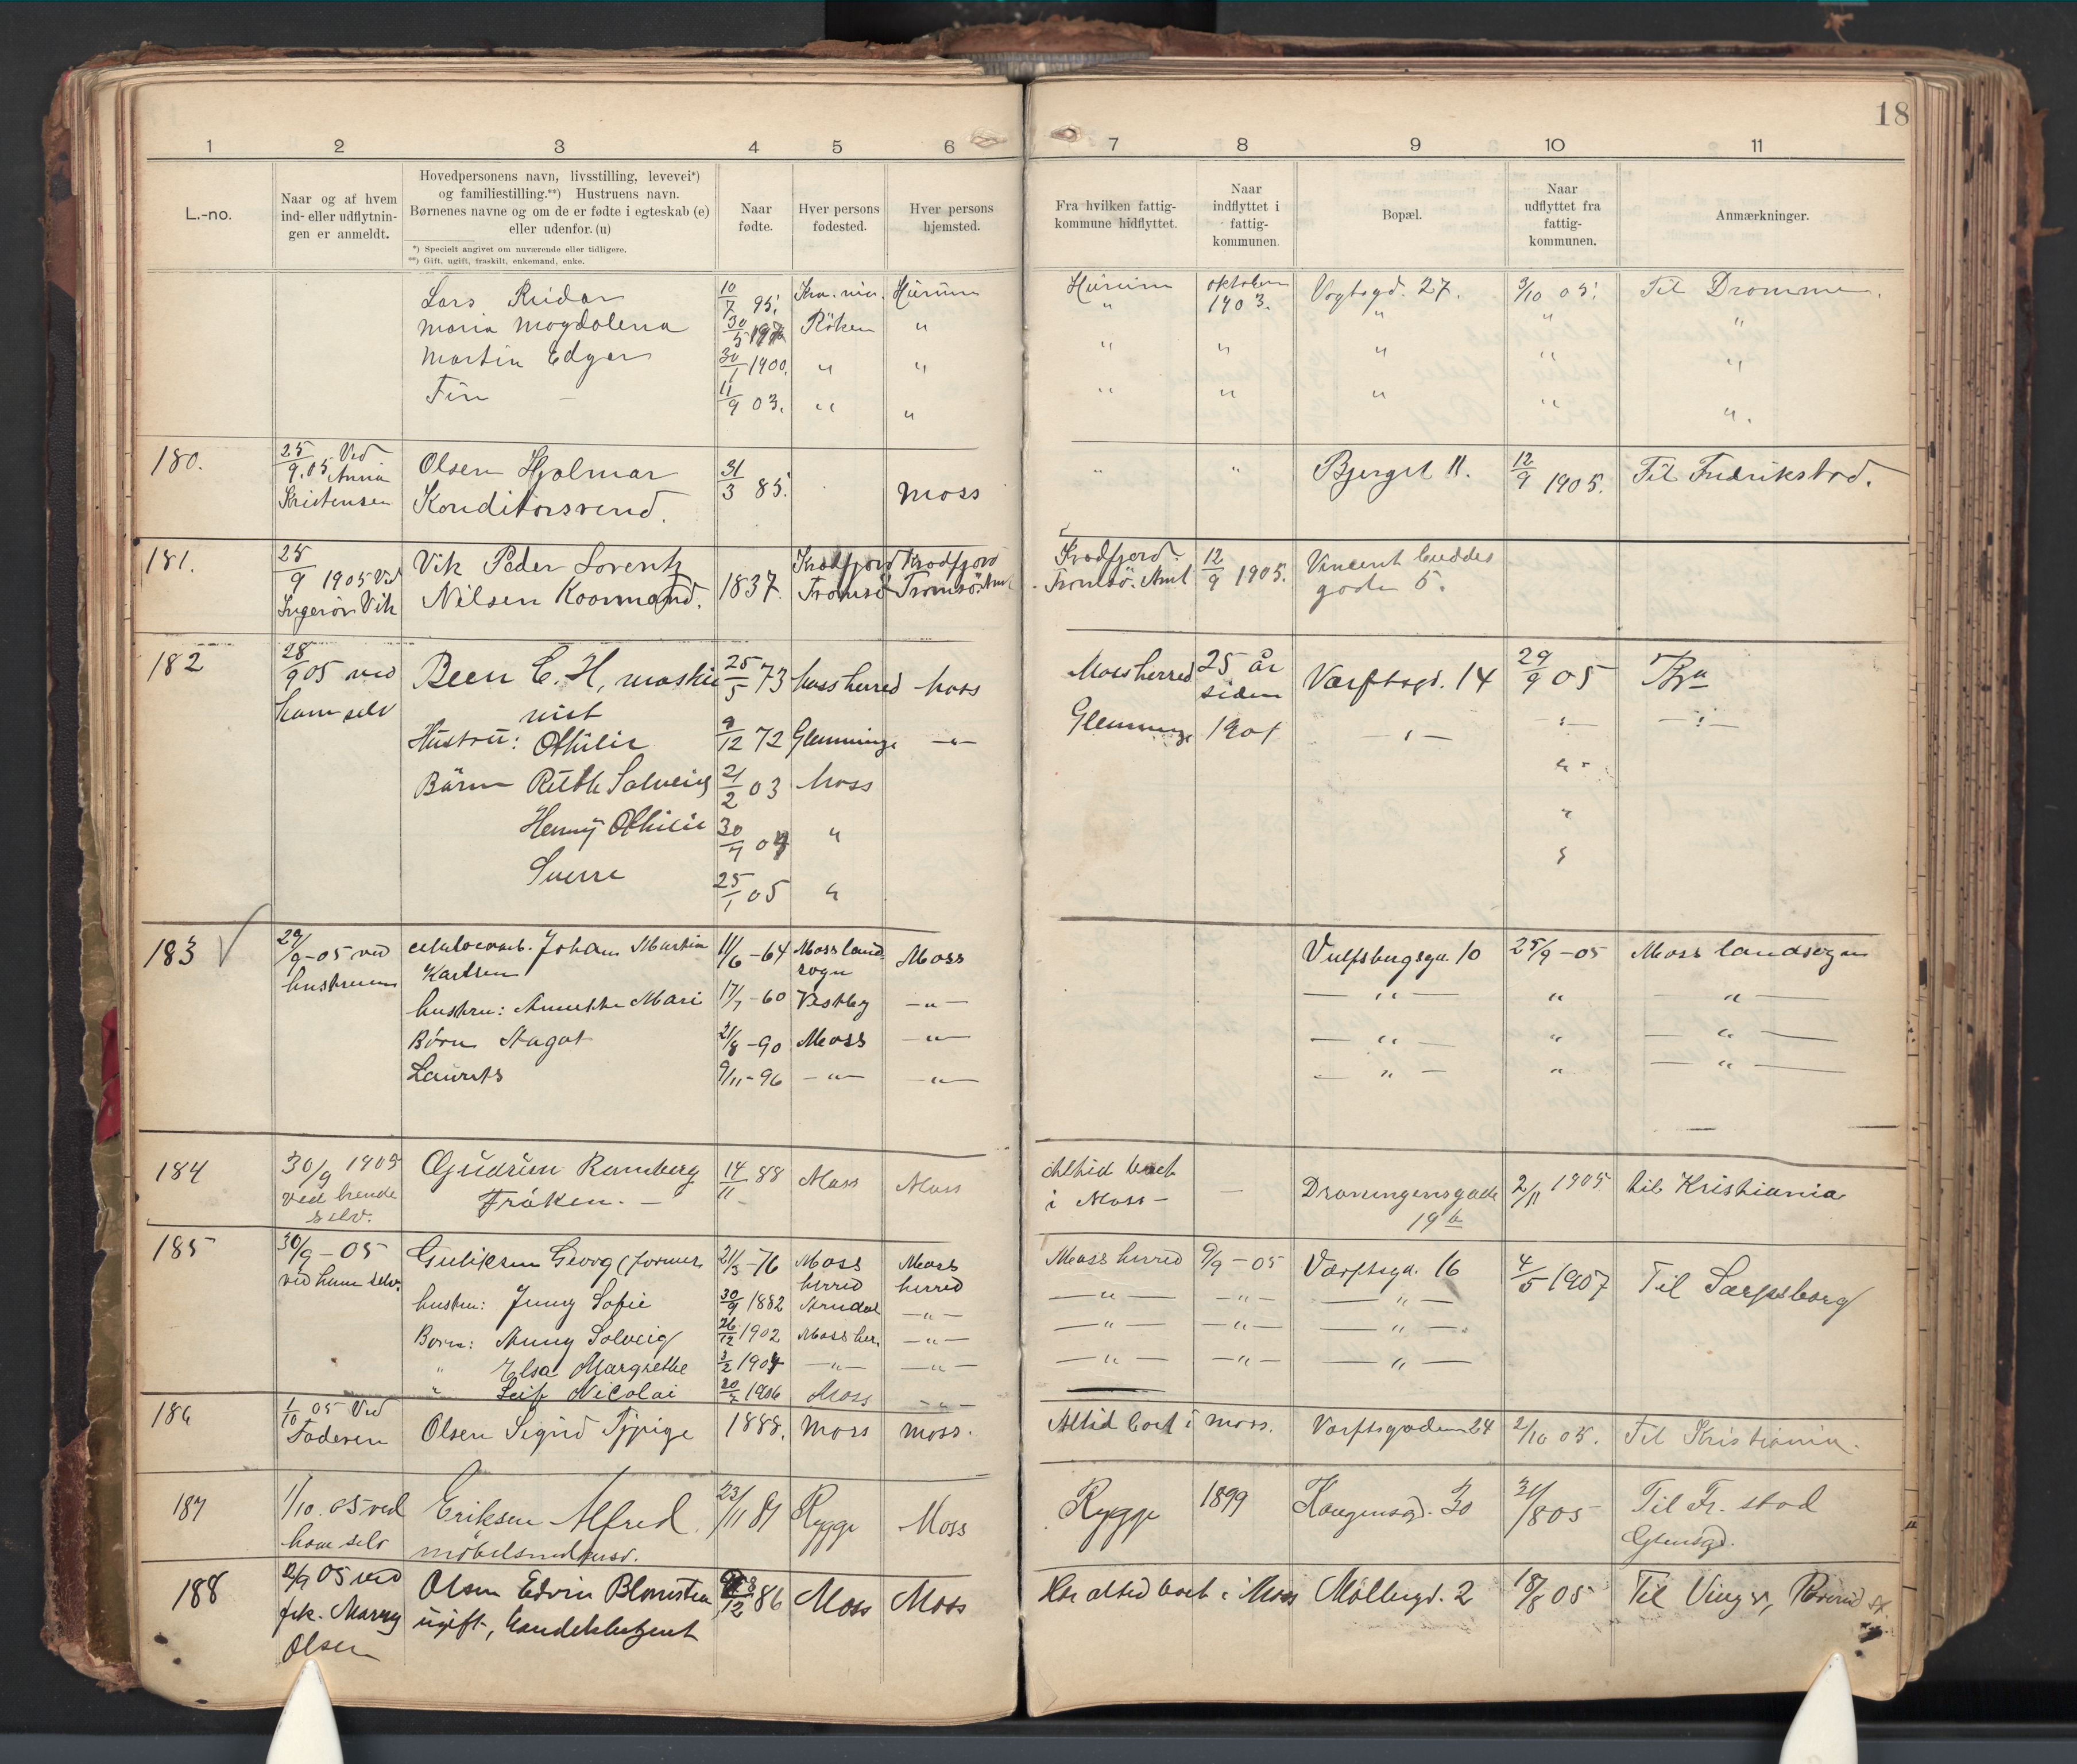 18
1 2 3 4 5 6 7 8 9 10 11
L.-no.
Naar og af hvem
ind- eller udflytnin-
gen er anmeldt.
Hovedpersonens navn, livsstilling, levevei*)
og familiestilling.**) Hustruens navn.
Børnenes navne og om de er fødte i egteskab (e)
eller udenfor. (u)
*) Specielt angivet om nuværende eller tidligere.
**) Gift, ugift, fraskilt, enkemand, enke.
Naar
fødte.
Hver persons
fødested.
Hver persons
hjemsted.
Fra hvilken fattig-
kommune hidflyttet.
Naar
indflyttet i
fattig-
kommunen.
Bopæl.
Naar
udflyttet fra
fattig-
kommunen.
Anmærkninger.
Lars Reidar 10/7 95. Hurum Hurum oktober 1903. Vogtsgd. 27. 3/10 05. Til Drammen.
Maria Magdalena 30/5 Röken " " " " "
Martin Edgar 30/1 1900. " " " " " " "
Fin 11/9 03. " " " " " " "
180. 25/9.05 Ved Anna Kristensen Olsen Hjalmar 31/3 85. Moss " " Bjerget 11. 12/9 1905. Til Fredrikstad.
Konditorsvend.
181. 25/9 1905 Ved Vik Peder Lorentz 1837. 12/9 1905. Vincent Buddes
Vik Nilsen Tromsö Tromsö Amt Tromsö. Amt gade 5.
182 28/9 05 ved Been C. H, maski 25/5 73 Moss herred Moss Moss herred 25 år siden Værftsgd. 14 29/9 05
ham selv nist
Hustru: Othilie 9/12 72 Glemminge -"- Glemminge 1901 -"- -"- -"-
Börn Ruth Solveig 21/2 03 Moss "
Henny Othilie 30/ 04 " "
Sverre 25/1 05 " "
183 29/9-05 ved Johan Martin 11/6-64 Moss land Moss Vulfsbergsgd. 10 25/9-05 Moss landsogn
hustruen Karlsen sogn
hustru: Annette Mari 17/7-60 Vestby -"- -"- " -"-
Børn Aagot 21/8-90 Moss -"- -"- " -"-
Laurits 9/11-96 -"- -"- -"- " -"-
184 30/9 1905 Gudrun Ramberg 14/11 88 Moss Moss Altid boet Dronningensgade 2/11 1905 til Kristiania
ved hende selv. Fröken. i Moss - 19 b
185 30/9-05 Guliksen Georg (former 21/3-76 Moss Moss Moss herred 9/9-05 Værftsgd. 16 4/5 1907 Til Sarpsborg
ved ham selv. herred herred
hustru: Jenny Sofie 30/9 1882 Arendal -"- -"- -"- -"-
Børn: Anny Solveig 26/12 1902 Moss her. -"- -"- -"- -"-
" Elsa Margrethe 3/2 1904 -"- -"- -"- -"- -"-
" Leif Nicolai 1906 Moss -"-
186 1/10 05 Ved Faderen Olsen Sigrid Tjpige 1888. Moss Moss. Altid boet i Moss. Værftsgaden 24 2/10 05. Til Kristiania.
187 1/10. 05 ved Eriksen Alfred 23/11 81 Rygge Moss Rygge 1899 Kongensgd. 30 31/8 05 Til Fr. stad
ham selv möbelsnedkersv.
188 2/9 05 ved Olsen Edvin 86 Moss Moss Har altid boet i Moss Möllergd. 2 18/8 05 Til Vinger,
frk. Marry ugift,
Olsen